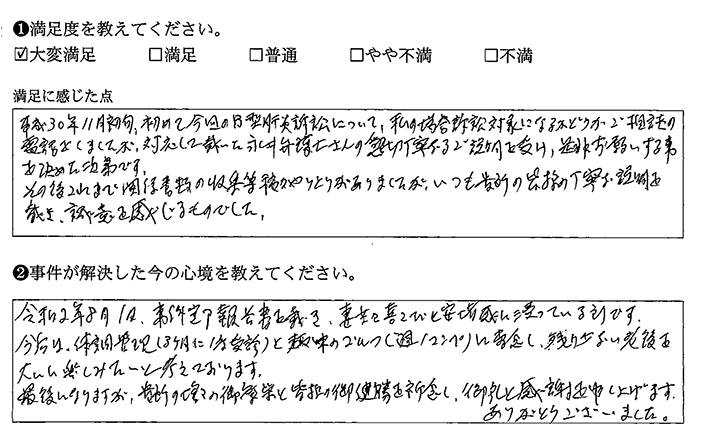 ❶満足度を教えてください。
☑大変満足 □満足 □普通 □やや不満 □不満
満足に感じた点
平成30年11月初旬、初めて今回のB型肝炎訴訟について、私の場合訴訟対象になるかどうかご相談の
電話をしましたが、対応して頂いた 弁護士さんの懇切丁寧なるご説明を受け、是非お願いする事
を決めた次第です。
その後これまで関係書類の収集等種々やりとりがありましたが、いつも貴所の皆様の丁寧な説明を
頂き、誠意を感じるものでした。
❷事件が解決した今の心境を教えてください。
令和2年8月1日、事件完了報告書を頂き、妻共々喜びと安堵感に浸っている所です。
今后は、体調管理(3ヶ月に1度受診)と趣味のゴルフ(週1コンペ)に専念し、残り少ない老後を
大いに楽しみたいと考えております。
最後になりますが、貴所の増々の御繁栄と皆様の御健勝を祈念し、御礼と感謝を申し上げます。
ありがとうございました。